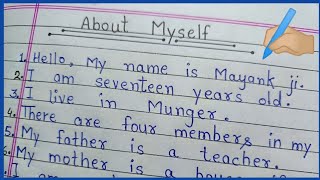 About Myself
1. Hello, My name is Mayank ji.
2. I am seventeen years old.
3. I live in Munger.
4. There are four members in my
5. My father is a teacher.
6. My mother is a
I am